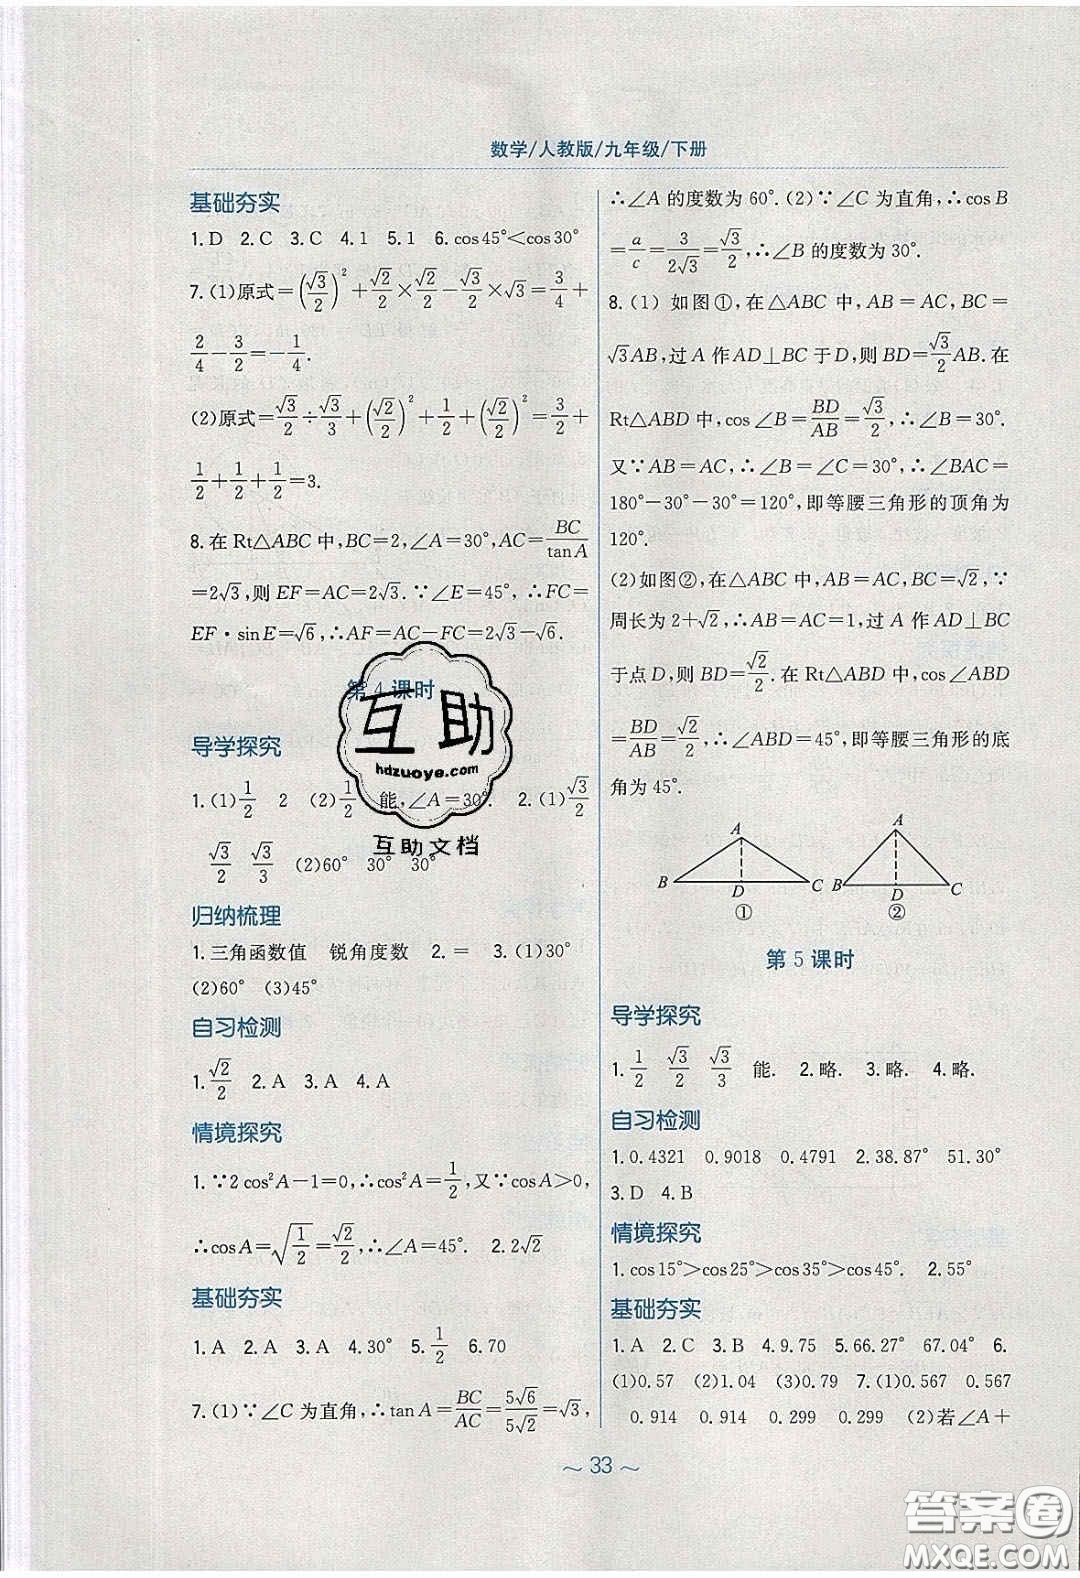 数学/人教版/九年级/下册
基础夯实
1.D 2.C 3.C 4.1 5.1 6.cos45°<cos30°
7.(1)原式=(√3/2)²+√2/2×√2/2-√3/2×√3=3/4+
2/4-3/2=-1/4.
(2)原式=√3/2÷√3/3+(√2/2)²+1/2+(√2/2)²=3/2+
1/2+1/2+1/2=3.
8.在Rt△ABC中,BC=2,∠A=30°,AC=BC/tanA
=2√3,则EF=AC=2√3.∵∠E=45°,∴FC=
EF·sinE=√6,∴AF=AC-FC=2√3-√6.
第4课时
导学探究
1.(1)1/2 2 (2)1/2 能,∠A=30°. 2.(1)√3/2
√3/2 √3/3 (2)60° 30° 30°
归纳梳理
1.三角函数值 锐角度数 2.= 3.(1)30°
(2)60° (3)45°
自习检测
1.√2/2 2.A 3.A 4.A
情境探究
1.∵2cos²A-1=0,∴cos²A=1/2,又∵cosA>0,
∴cosA=√(1/2)=√2/2,∴∠A=45°. 2.2√2
基础夯实
1.A 2.A 3.A 4.30° 5.1/2 6.70
7.(1)∵∠C为直角,∴tanA=BC/AC=5√6/5√2=√3,
∴∠A的度数为60°.(2)∵∠C为直角,∴cosB
=a/c=3/2√3=√3/2,∴∠B的度数为30°.
8.(1)如图①,在△ABC中,AB=AC,BC=
√3AB,过A作AD⊥BC于D,则BD=√3/2AB.在
Rt△ABD中,cos∠B=BD/AB=√3/2,∴∠B=30°.
又∵AB=AC,∴∠B=∠C=30°,∴∠BAC=
180°-30°-30°=120°,即等腰三角形的顶角为
120°.
(2)如图②,在△ABC中,AB=AC,BC=√2,∵
周长为2+√2,∴AB=AC=1,过A作AD⊥BC
于点D,则BD=√2/2.在Rt△ABD中,cos∠ABD
=BD/AB=√2/2,∴∠ABD=45°,即等腰三角形的底
角为45°.
A B D C ①
A B D C ②
第5课时
导学探究
1.1/2 √3/2 √3/3 能. 2.略. 3.略. 4.略.
自习检测
1.0.4321 0.9018 0.4791 2.38.87° 51.30°
3.D 4.B
情境探究
1.cos15°>cos25°>cos35°>cos45°. 2.55°
基础夯实
1.A 2.C 3.B 4.9.75 5.66.27° 67.04° 6.
(1)0.57 (2)1.04 (3)0.42 7.(1)0.567 0.567
0.914 0.914 0.299 0.299 (2)若∠A+
~ 33 ~
互助
hdzuoye.com
互助文档
答案圈
MXQE.COM